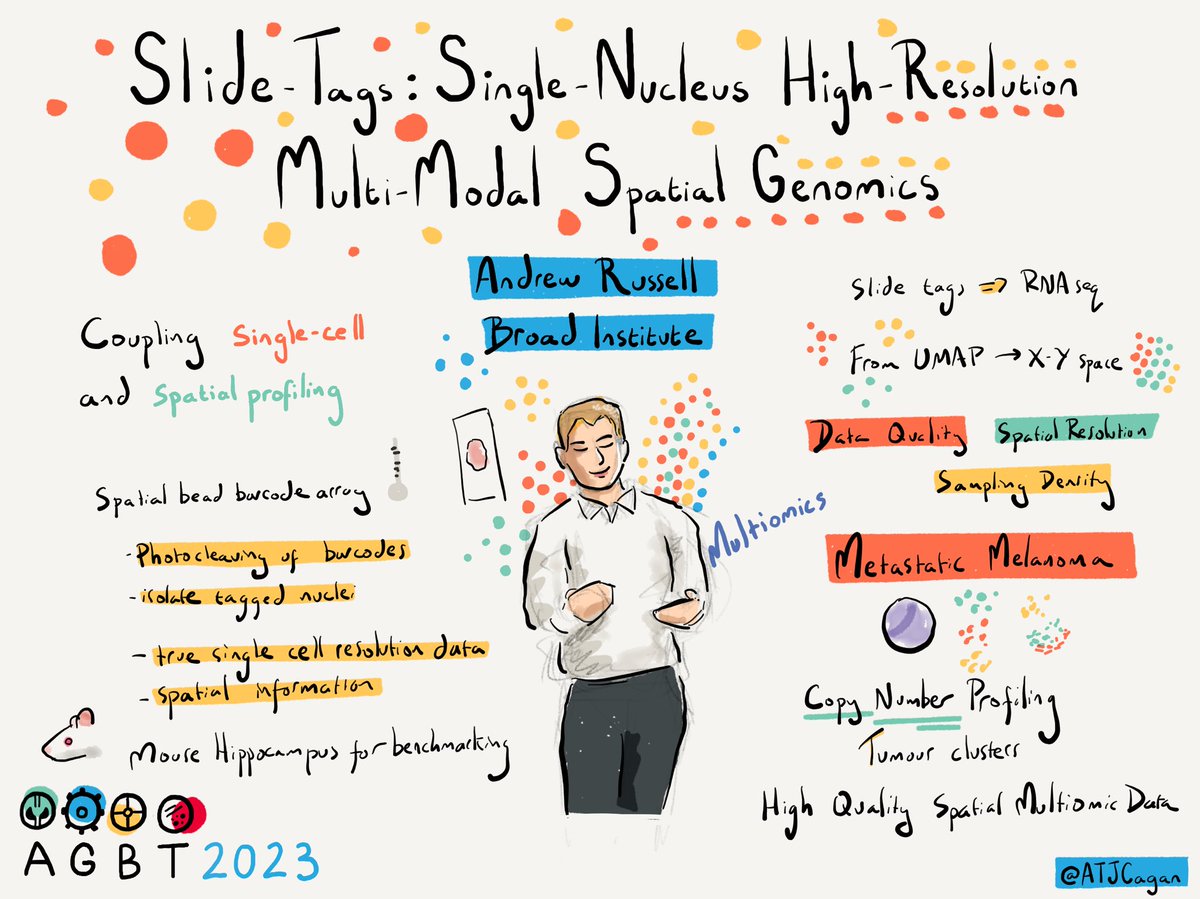 Slide-Tags: Single-Nucleus High-Resolution
Multi-Modal Spatial Genomics
Andrew Russell
Broad Institute
Coupling single-cell
and spatial profiling
Spatial bead barcode array
- Photocleaving of barcodes
- isolate tagged nuclei
- true single cell resolution data
- spatial information
Mouse Hippocampus for benchmarking
Multiomics
Slide tags ⇒ RNAseq
From UMAP → X-Y space
Data Quality
Spatial Resolution
Sampling Density
Metastatic Melanoma
Copy Number Profiling
Tumour clusters
High Quality Spatial Multiomic Data
AGBT 2023
@ATJCagan